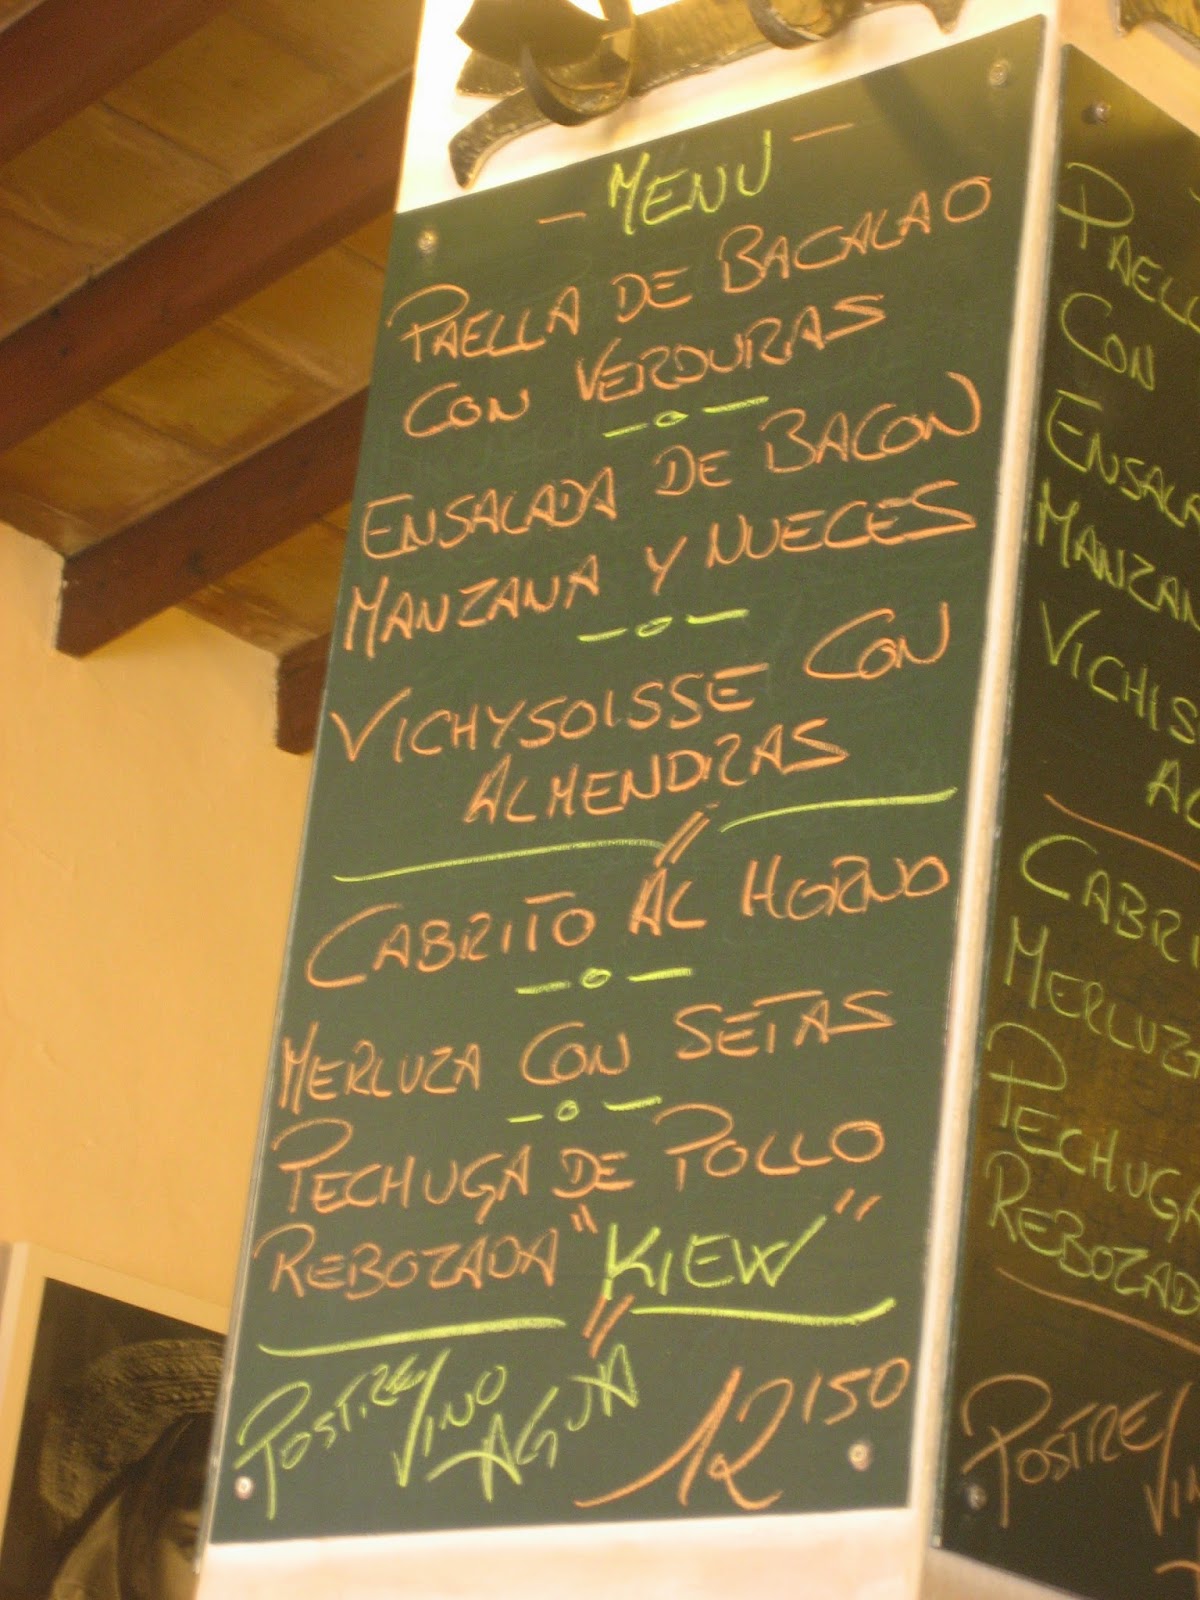 - MENU -
PAELLA DE BACALAO
CON VERDURAS
ENSALADA DE BACON
MANZANA Y NUECES
VICHYSOISSE CON
ALMENDRAS
CABRITO AL HORNO
MERLUZA CON SETAS
PECHUGA DE POLLO
REBOZADA "KIEW"
POSTRE/VINO
AGUA
12'50
PAELL
CON
ENSALA
MANZAN
VICHIS
AL
CABRI
MERLUZA
PECHUGA
REBOZAD
POSTRE/
VIN